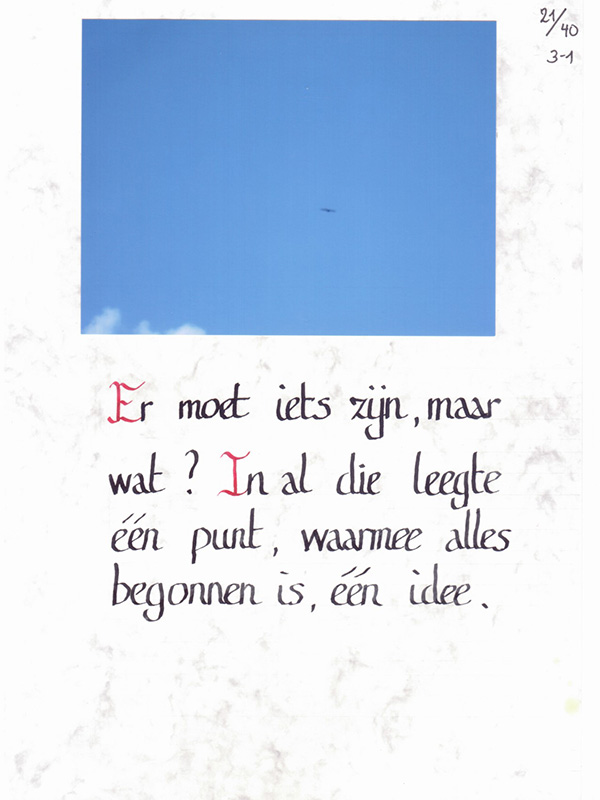 21/40
3-1
Er moet iets zijn, maar
wat? In al die leegte
één punt, waarmee alles
begonnen is, één idee.